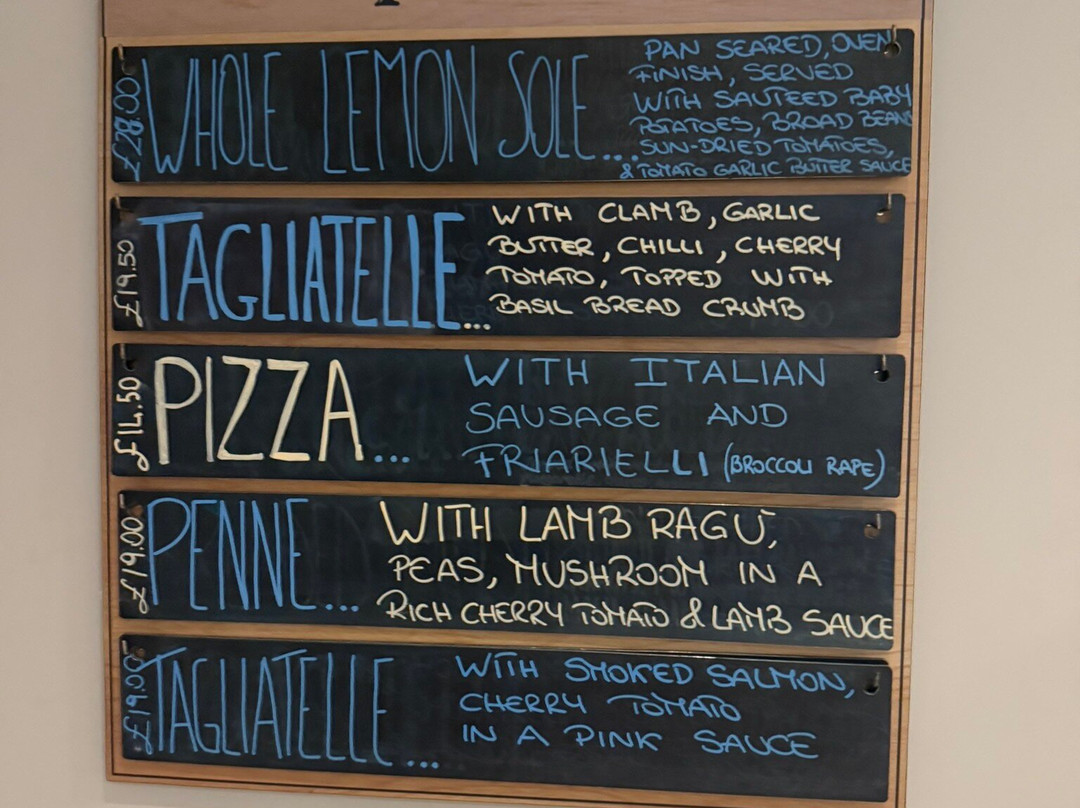 £28.00 WHOLE LEMON SOLE...
PAN SEARED, OVEN
FINISH, SERVED
WITH SAUTEED BABY
POTATOES, BROAD BEANS
SUN-DRIED TOMATOES,
& TOMATO GARLIC BUTTER SAUCE
£19.50 TAGLIATELLE...
WITH CLAMB, GARLIC
BUTTER, CHILLI, CHERRY
TOMATO, TOPPED WITH
BASIL BREAD CRUMB
£14.50 PIZZA...
WITH ITALIAN
SAUSAGE AND
FRIARIELLI (BROCCOLI RAPE)
£19.00 PENNE...
WITH LAMB RAGÙ,
PEAS, MUSHROOM IN A
RICH CHERRY TOMATO & LAMB SAUCE
£19.00 TAGLIATELLE...
WITH SMOKED SALMON,
CHERRY TOMATO
IN A PINK SAUCE